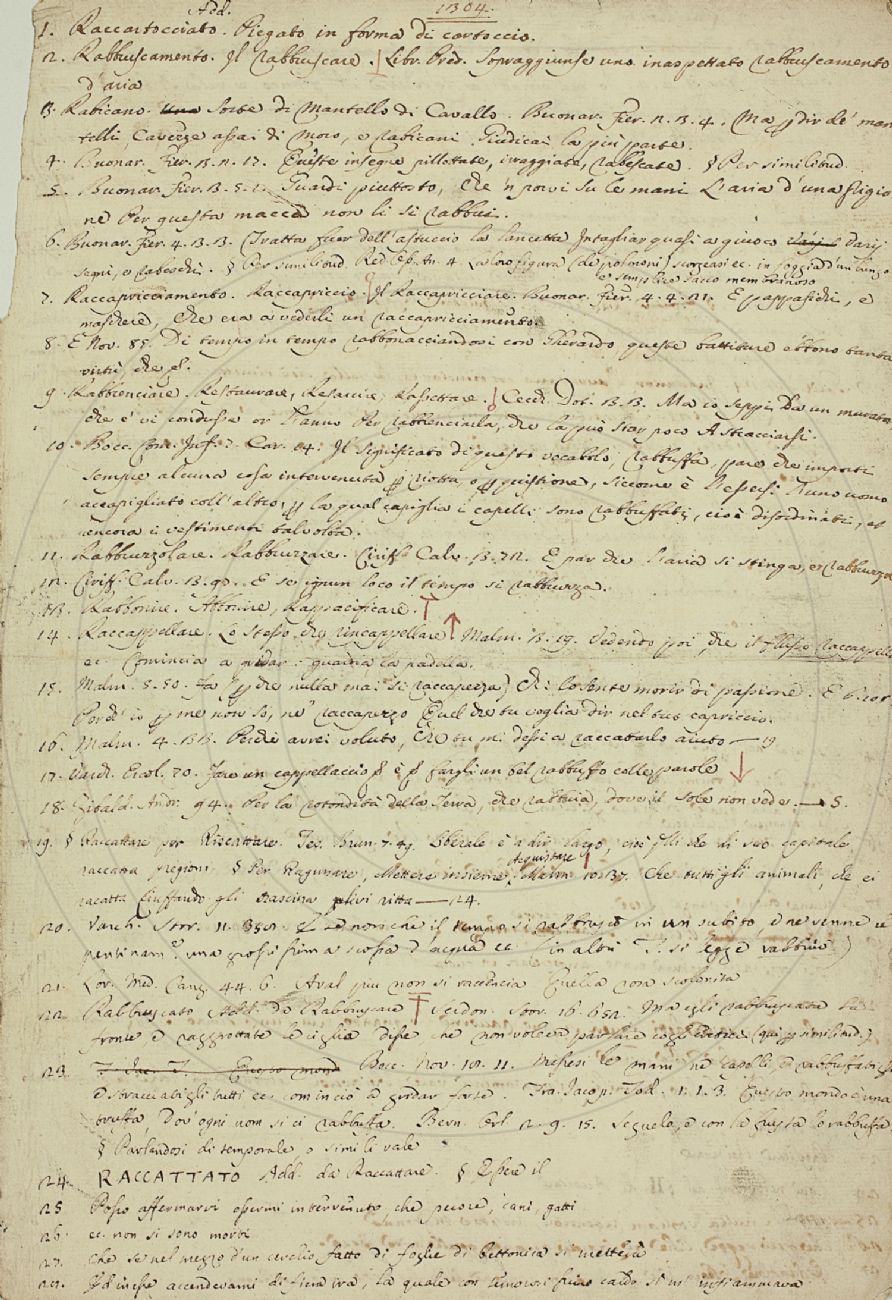 1304.
Add.
1. Raccartocciato. Piegato in forma di cartoccio.
2. Rabbuscamento. Il rabbuscare. Libr. Pred. Sopraggiunse uno inaspettato rabbuscamento
d'aria
3. Rabicano. Una Sorte di Mantello di Cavallo. Buonar. Fier. 2. 3. 4. Ma dir de' man
telli, Cavezze assai di Moro, e rabicani Giudicai la più parte.
4. Buonar. Fier. 3. 2. 17. Queste insegne pillottate, e rabescate. § Per similitud.
5. Buonar. Fier. 3. 5. 2. Guardi piuttosto, che 'n porvi su le mani L'aria d'una prigio
ne Per questa non li si rabbui.
6. Buonar. Fier. 4. 3. 3. Tratta fuor dell'astuccio la lancetta Intagliar quasi a giuoco darij
segni, e rabeschi. § Per similitud. Red. tn. 4. La lor figura (dei polmoni) ec. in foggia d'un lungo
e semplice sacco membranoso
7. Raccapricciamento. Raccapriccio. Il Raccapricciare. Buonar. Fier. 4. 4. 21. E pappafichi, e
maschere, che era a vederli un raccapricciamento.
8. E Nov. 85. Di tempo in tempo rabbonacciandosi con Gherardo queste battiture ebbono tanta
virtù, che
9. Rabbenciare. Restaurare, Resarcire, Rassettare. Cecch. Dot. 3. 3. Ma io seppi da un murato
che e' vi condusse or Fanno Per rabbenciarla, che la può star poco A stracciarsi.
10. Bocc. Com. Inf. 7. Car. Il significato di questo vocabolo, rabbuffa, pare che importi
sempre alcuna cosa intervenuta riotta o quistione, siccome è l'essersi l'uno uomo
accapigliato coll'altro, la qual capiglia i capelli sono rabbuffati, cioè disordinati, ed
ancora i vestimenti talvolta.
11. Rabbruzzolare. Rabbruzzare. Ciriff. Calv. 3. 72. E par che l'aria si stinga, e rabbruzza
12. Ciriff. Calv. 3. 90. E se loco il tempo si rabbruzza.
13. Rabbonire. Abbonire, Rappacificare.
14. Raccappellare. Lo stesso che rincappellare Malm. 3. 19. Vedendo poi, che il Raccappella
ec. Comincia a gridar: guarda la padella.
15. Malm. 5. 50. Fa che nulla mai si raccapezza Chi lo sente morir di passione. E 6. 108
Perch' io me non so, nè raccapezzo Quel che tu voglia dir nel tuo capriccio.
16. Malm. 4. Perchè avrei voluto, che tu mi dessi a raccattarlo aiuto — 19
17. Varch. Ercol. 70. Fare un cappellaccio è fargli un bel rabbuffo colle parole
18. Zibald. Andr. 94. Per la rotondità della Terra, che rabbuia, dove il Sole non vede. — 5.
19. § Raccattare per Riscattare. Tes. Brun. 7. 49. Liberale è a dir largo, cioè che di suo capitale
raccatta prigioni. § Per Ragunare, Mettere insieme, Acquistare. Malm. 10. 37. Che tutti gli animali, che ei
racatta Ciuffando gli trascina ritta — 24.
20. Varch. Stor. 11. che il tempo si rabbruscò in un subito, e ne venne re
pentinam.e una grossissima scossa d'acqua ec. (in altri T. si legge rabbuiò)
21. Lor. Med. Canz. 44. 6. Aval più non si racencia Quella rosa scolorita
22. Rabbruscato Add. da Rabbruscare Segdon. Stor. 16. 652. Ma egli rabbruscata la
fronte e raggrottate le ciglia disse che non voleva parlare (qui similitud.)
23. Questo mond Bocc. Nov. 101. 11. Messesi le mani ne' capelli, e rabbuffatigli
e stracciatigli tutti ec. cominciò a gridar forte. Fra Jacop. Tod. 1. 1. 3. Questo mondo è una
truffa, Dov'ogni uom si ci rabbuffa. Bern. Orl. 2. 9. 15. Seguela, e con la frusta lo rabbuffa
§ Parlandosi di temporale, o simili vale
24. RACCATTATO Add. da Raccattare. § Essere il
25 Posso affermarvi essermi intervenuto, che pecore, cani, gatti
26. ec. non si sono morti
27. Che se nel mezzo d'un cerchio fatto di foglie di bettonica si mettesse
accendevami di fiera ira, la quale con caldo si m' infiammava